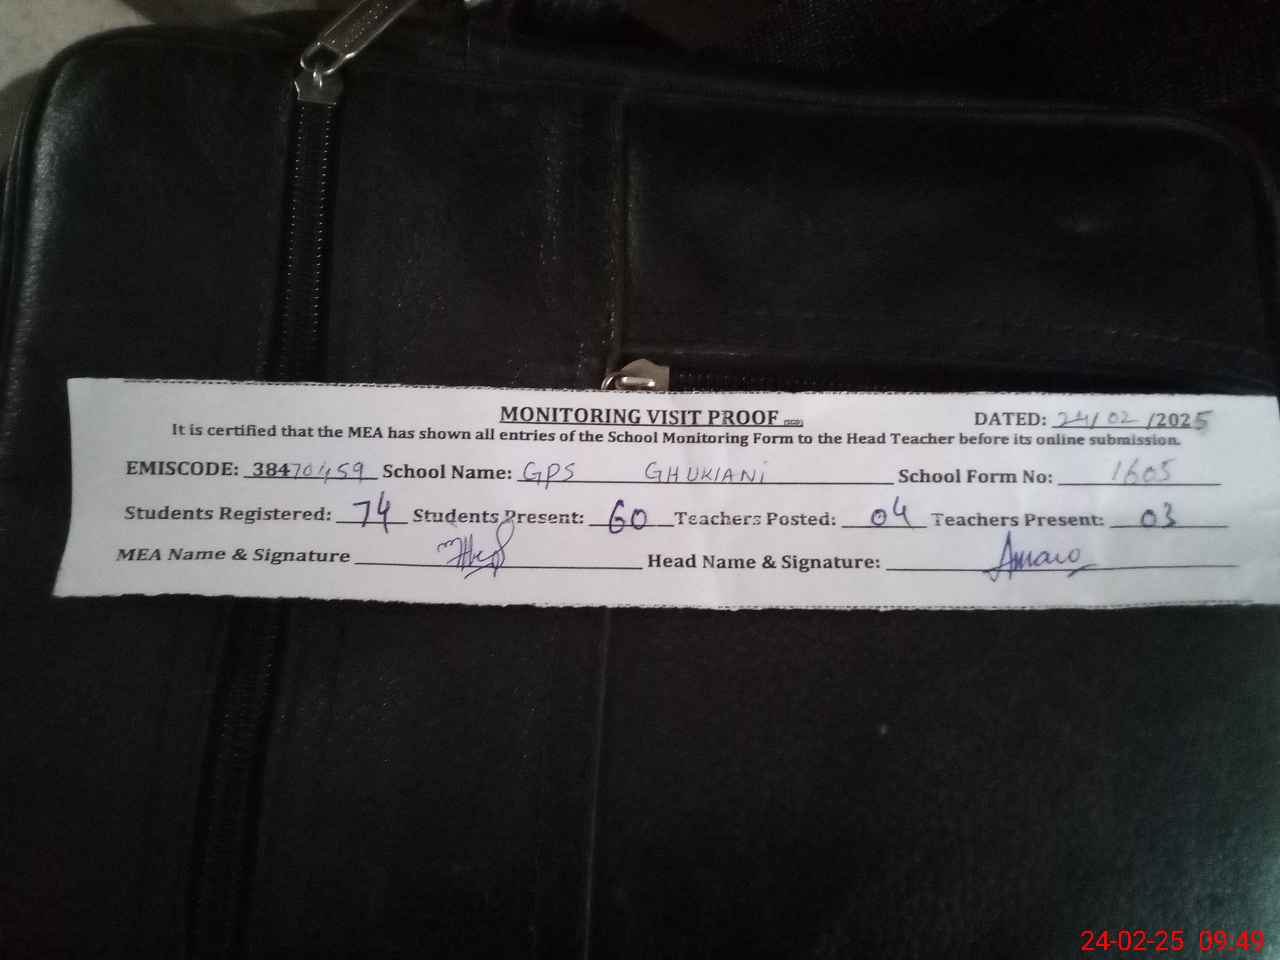 MONITORING VISIT PROOF
DATED: 24/02/2025
It is certified that the MEA has shown all entries of the School Monitoring Form to the Head Teacher before its online submission.
EMISCODE: 38470459 School Name: GPS GHUKIANi School Form No: 1605
Students Registered: 74 Students Present: 60 Teachers Posted: 04 Teachers Present: 03
MEA Name & Signature Head Name & Signature:
24-02-25 09:49